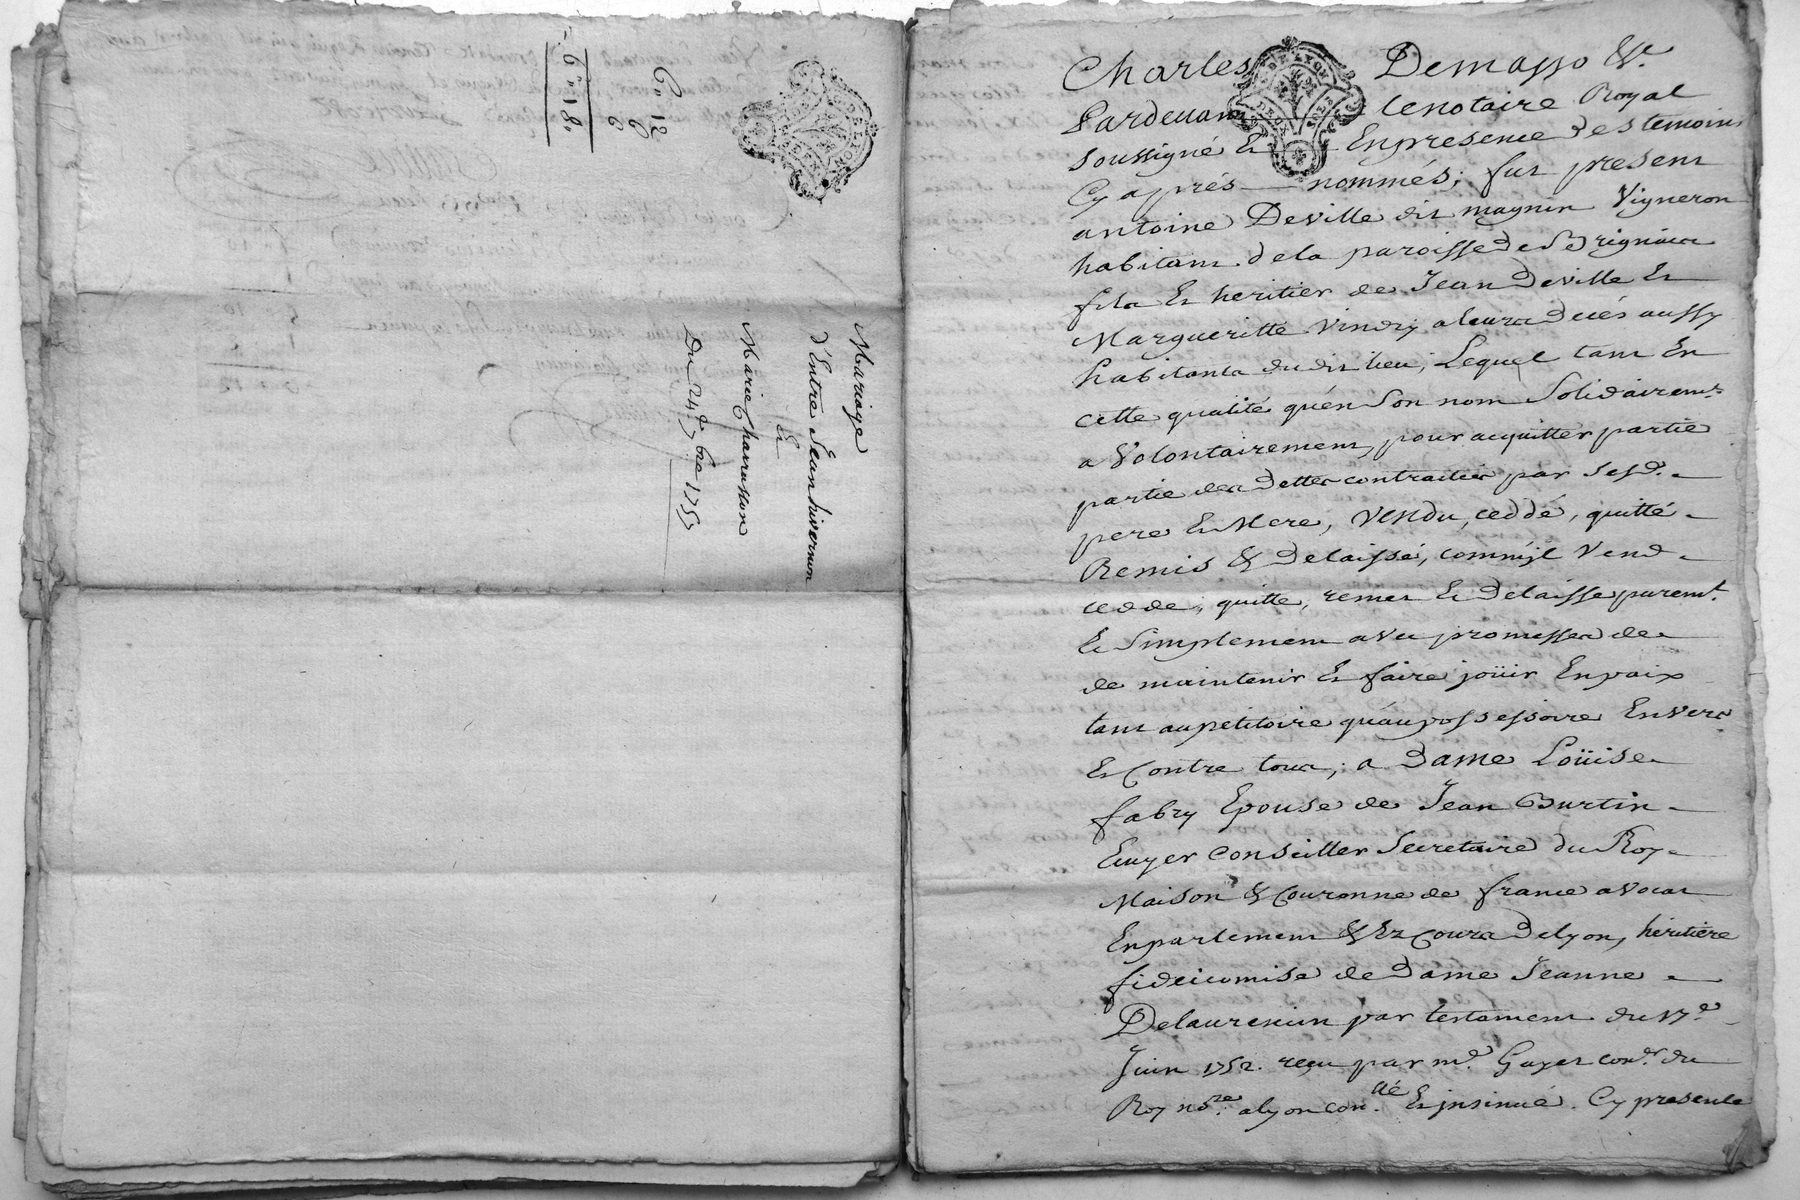 6 " 12
6
6
6 " 18.
Mariage
d'Entre Jean hivernon
Et
Marie Charusson
Du 24e 7bre 1757
Charles Demasso &c.
Pardevant le notaire Royal
soussigné Et En presence des temoins
Cy aprés nommés; fut present
antoine Deville dit magnin Vigneron
habitant de la paroisse de Brignais
fils Et heritier de Jean Deville Et
Margueritte Vindry a leurs decés aussy
habitants du dit lieu, Lequel tant En
cette qualité qu'en Son nom Solidairemt.
a Volontairement, pour acquitter partie
partie des dettes contractées par sesd.
pere Et Mere, Vendu, ceddé, quitté
Remis & Delaissé, comm'jl Vend
cedde, quitte, remet Et Delaisse puremt.
Et Simplement avec promesses de
de maintenir Et faire joüir En paix
tant au petitoire qu'au possessoire Envers
Et Contre tous; a Dame Loüise
fabry Epouse de Jean Burtin
Ecuyer Conseiller Secretaire du Roy
Maison & Couronne de france avocat
En parlement & Ez Cours de lyon, héritiére
fideicomise de Dame Jeanne
Delaurencin par testament du 17e
Juin 1752. reçu par me Gayet coner. du
Roy nore. a lyon con.llé Et jnsinué. Cy presente